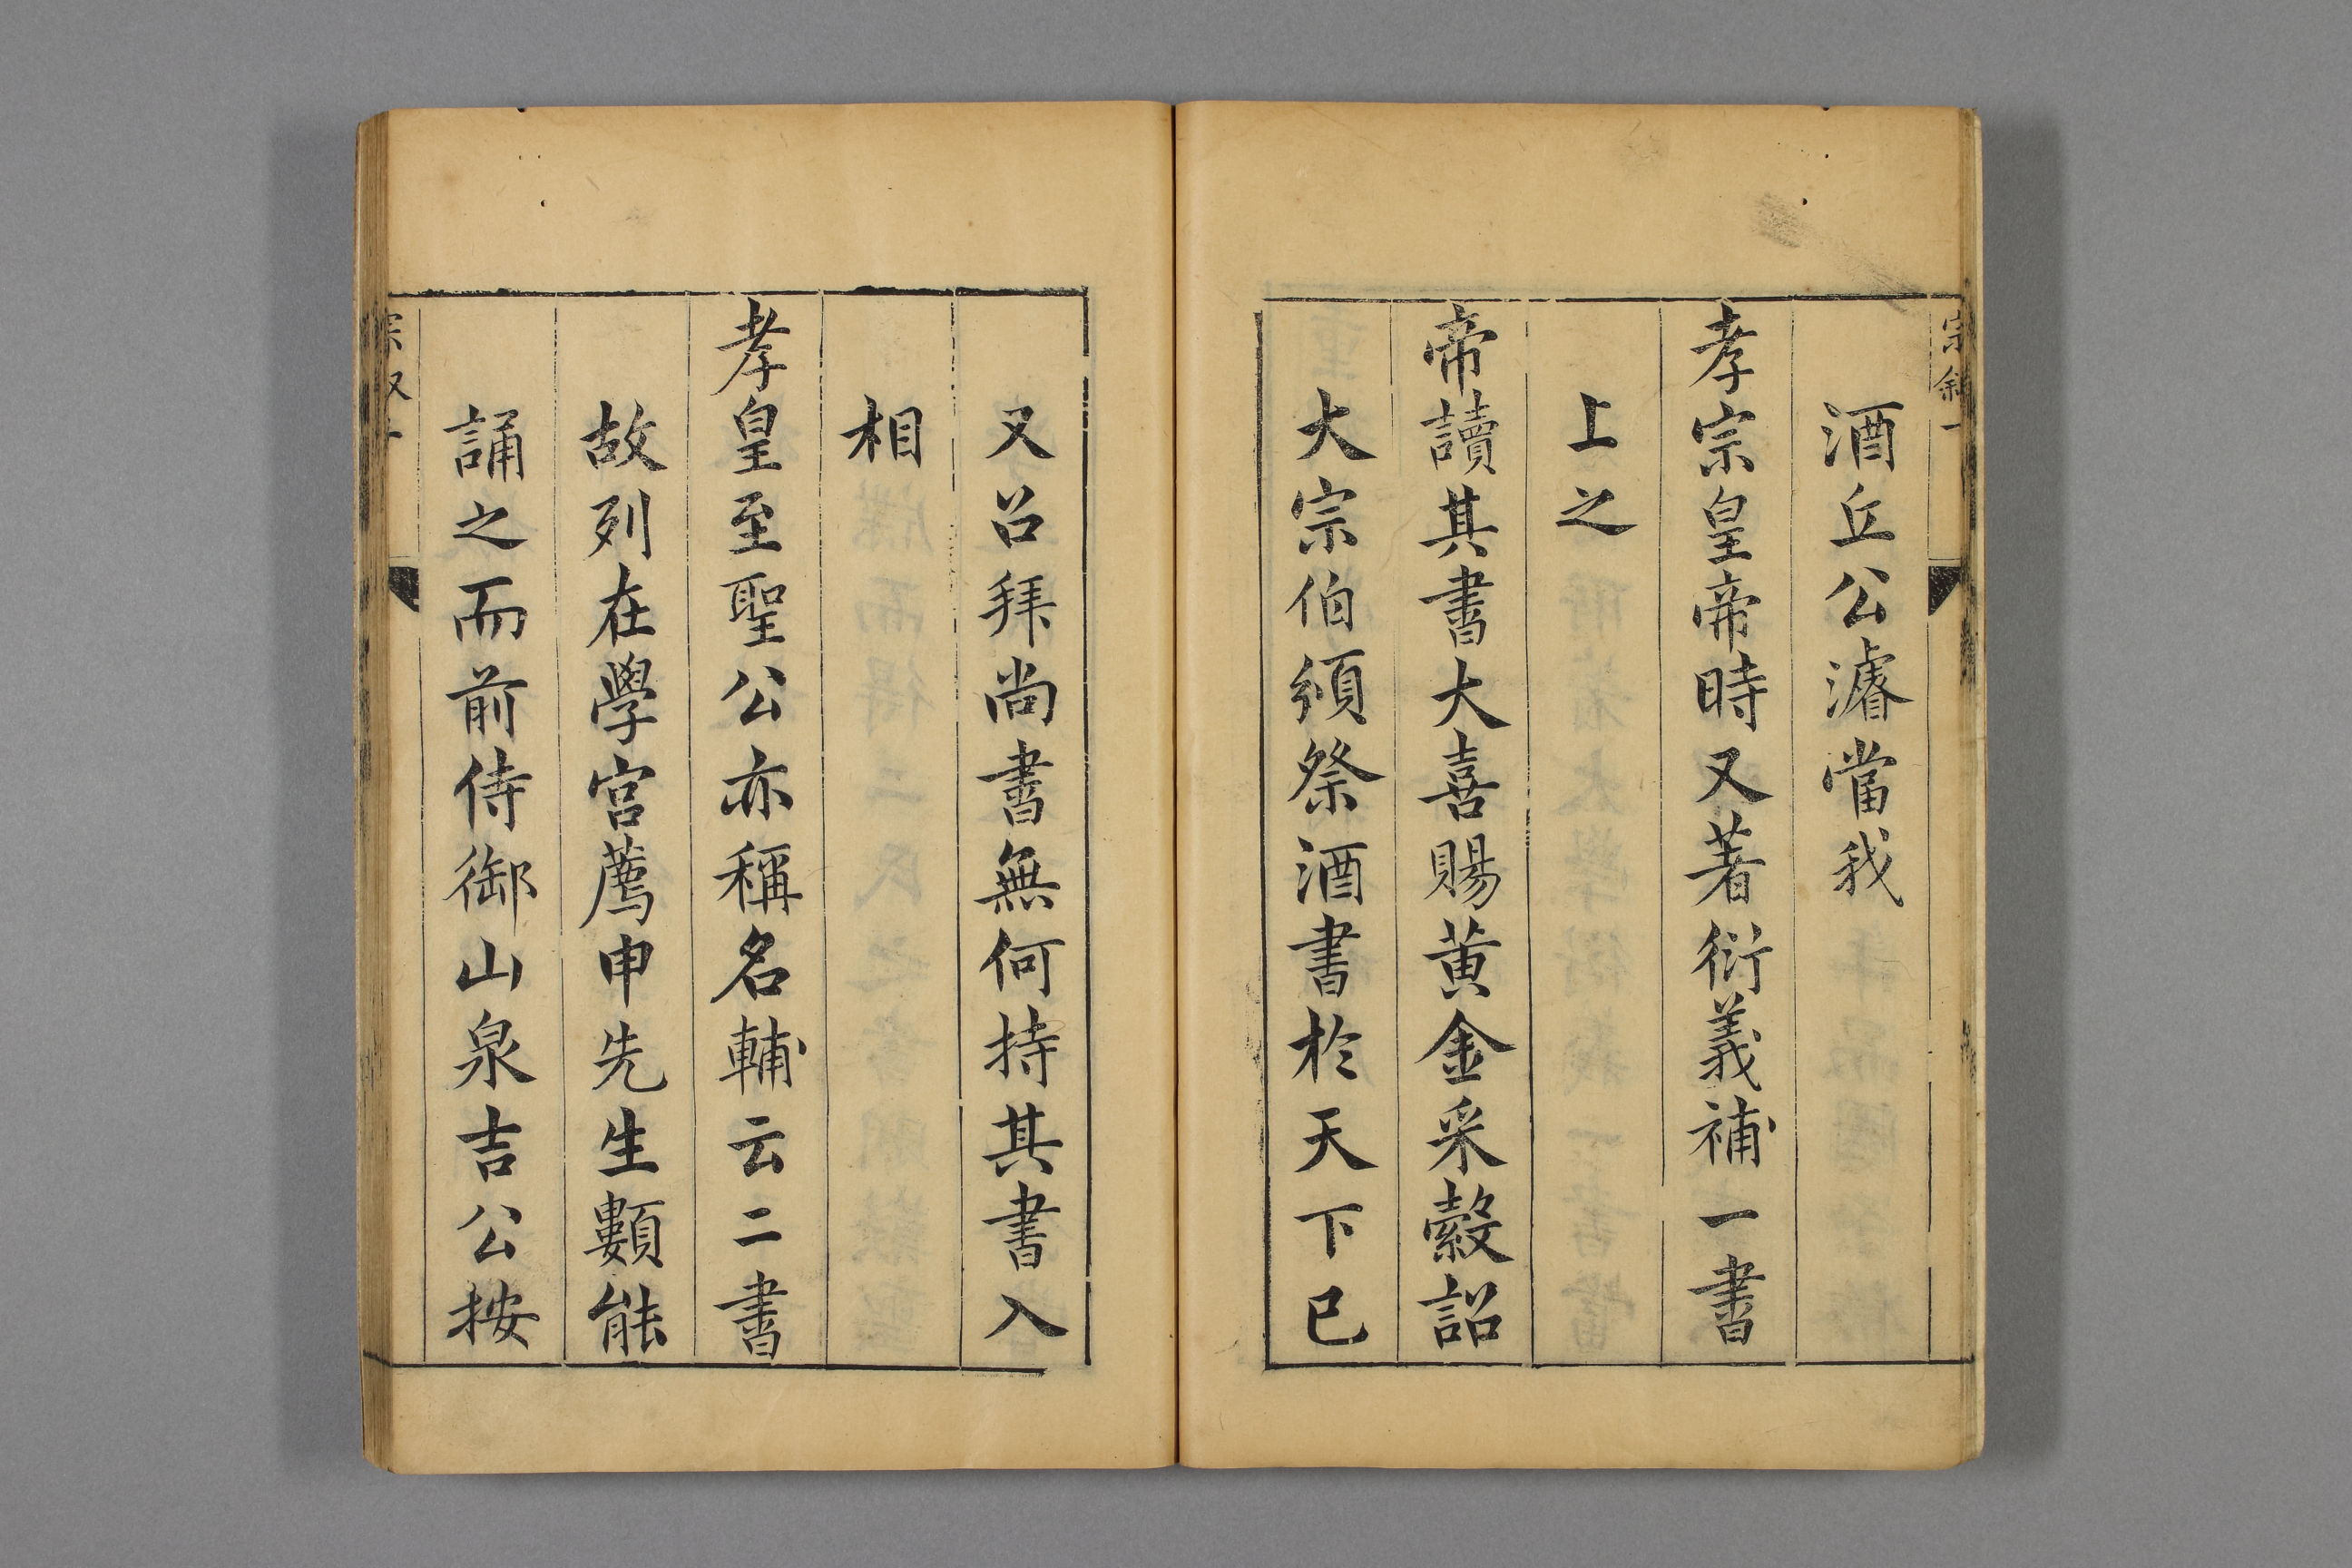 宗叙一
酒丘公濬當我
孝宗皇帝時又著衍義補一書
上之
帝讀其書大喜賜黄金采縠詔
大宗伯須祭酒書於天下已
又召拜尚書無何持其書入
相
孝皇至聖公亦稱名輔云二書
故列在學宫薦申先生數能
誦之而前侍御山泉吉公按